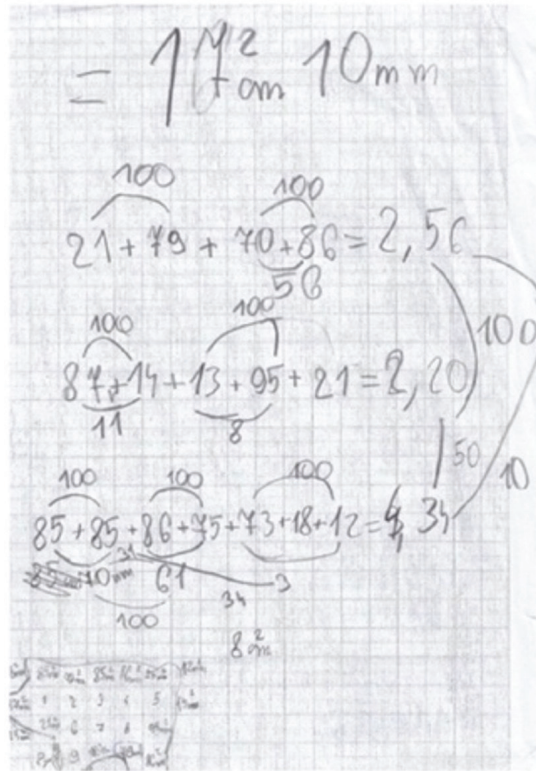 = 17 cm² 10 mm
100 100
21 + 79 + 70 + 86 = 2,56
56
100
100 100
87 + 14 + 13 + 95 + 21 = 2,20
11 8
50
10
100 100 100
85 + 85 + 86 + 75 + 73 + 18 + 12 = 4,34
31
70 mm 61 34 3
100
8 cm²
1 2 3 4 5
6 7 8
9